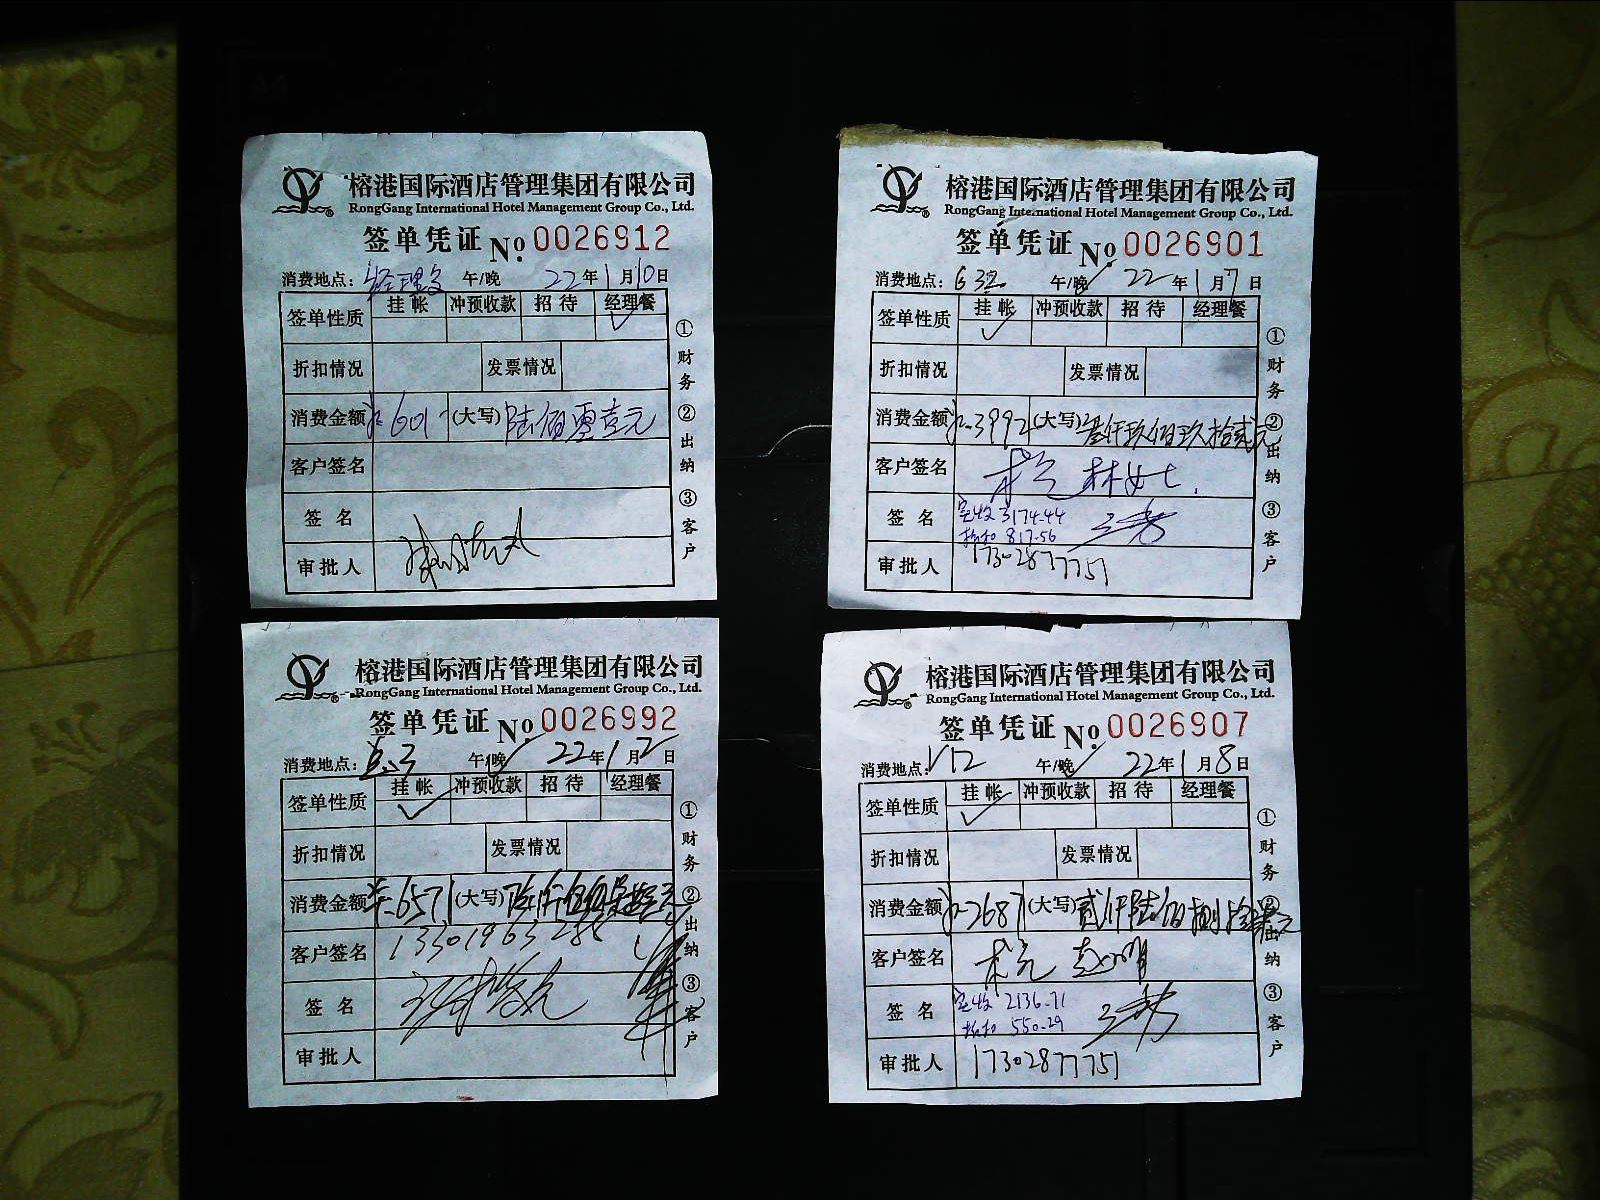 榕港国际酒店管理集团有限公司
RongGang International Hotel Management Group Co., Ltd.
签单凭证 No. 0026912
消费地点: 午/晚 22年1月10日
签单性质 挂帐 冲预收款 招待 经理餐
折扣情况 发票情况
消费金额 601 (大写) 陆佰零壹元
客户签名
签名
审批人
①财务 ②出纳 ③客户
榕港国际酒店管理集团有限公司
RongGang International Hotel Management Group Co., Ltd.
签单凭证 No. 0026901
消费地点: 午/晚 22年1月7日
签单性质 挂帐 冲预收款 招待 经理餐
折扣情况 发票情况
消费金额 3992 (大写) 叁仟玖佰玖拾贰元
客户签名 林女士
签名 实收 3174.44
折扣 817.56
审批人 17302877751
①财务 ②出纳 ③客户
榕港国际酒店管理集团有限公司
RongGang International Hotel Management Group Co., Ltd.
签单凭证 No. 0026992
消费地点: 午/晚 22年1月2日
签单性质 挂帐 冲预收款 招待 经理餐
折扣情况 发票情况
消费金额 6571 (大写)
客户签名 13301963288
签名
审批人
①财务 ②出纳 ③客户
榕港国际酒店管理集团有限公司
RongGang International Hotel Management Group Co., Ltd.
签单凭证 No. 0026907
消费地点: V12 午/晚 22年1月8日
签单性质 挂帐 冲预收款 招待 经理餐
折扣情况 发票情况
消费金额 2687 (大写) 贰仟陆佰捌拾柒元
客户签名
签名 实收 2136.71
折扣 550.29
审批人 17302877751
①财务 ②出纳 ③客户